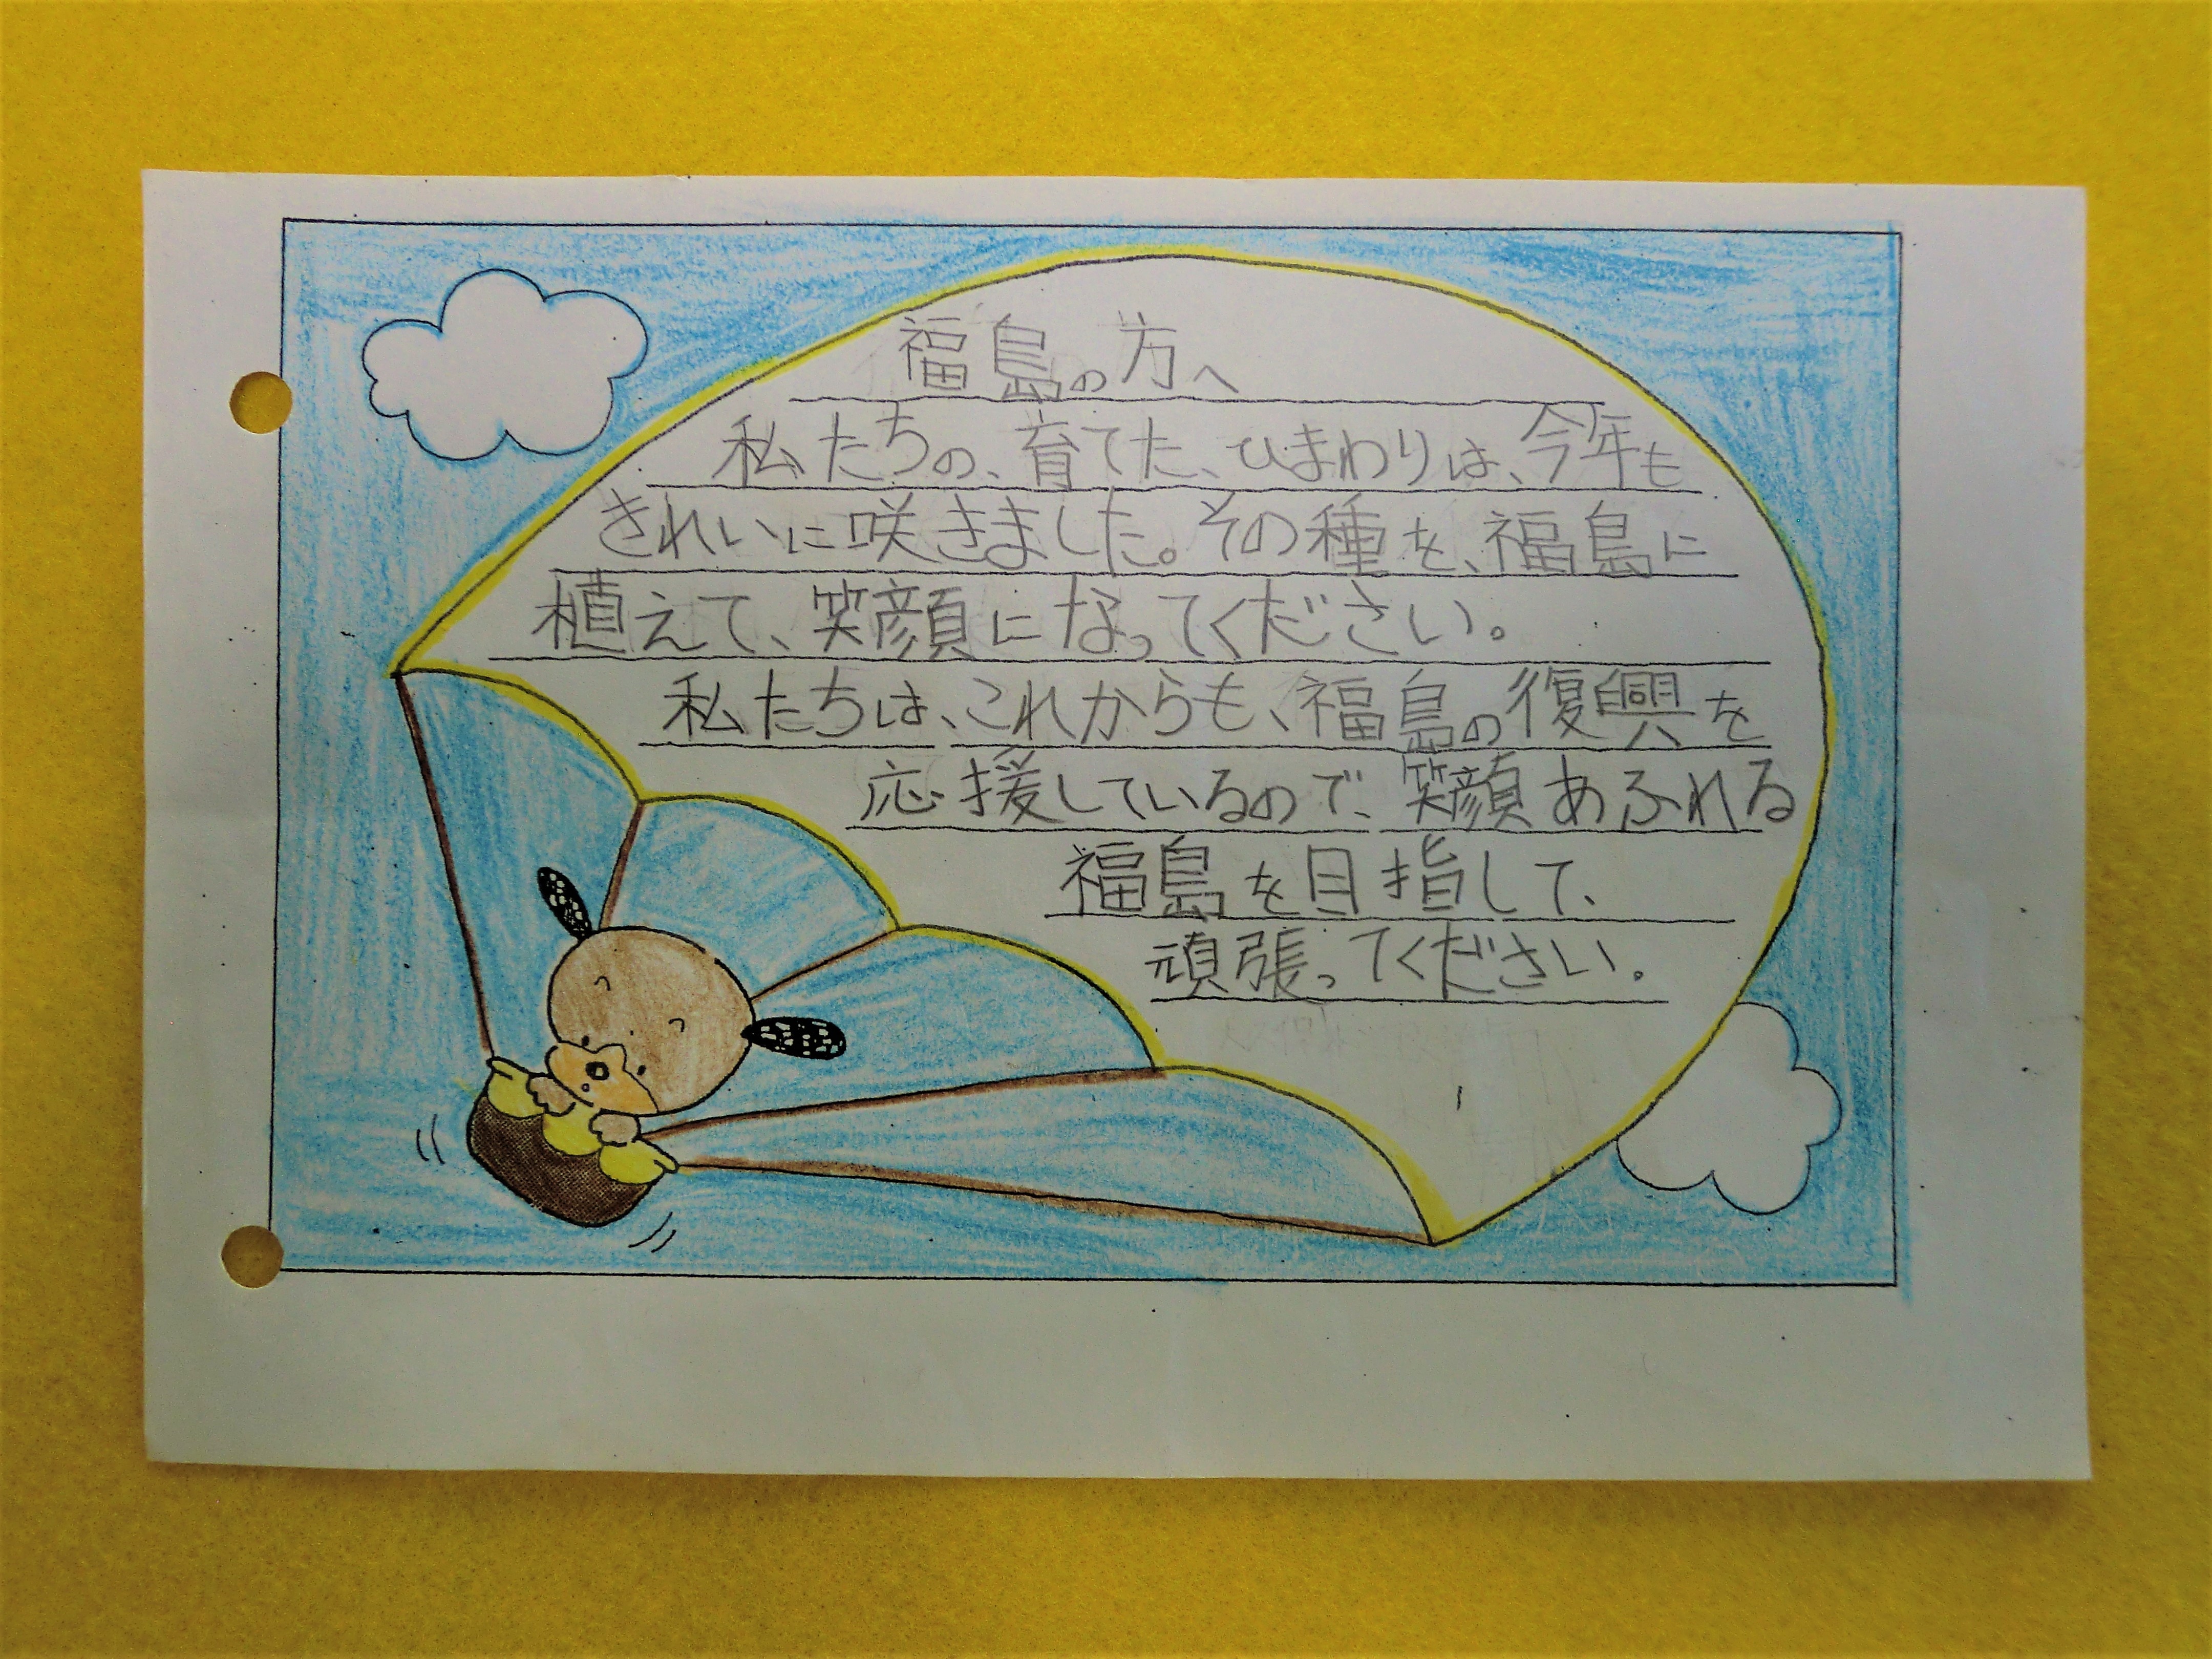 福島の方へ
私たちの、育てた、ひまわりは、今年も
きれいに咲きました。その種を、福島に
植えて、笑顔になってください。
私たちは、これからも、福島の復興を
応援しているので、笑顔あふれる
福島を目指して、
頑張ってください。